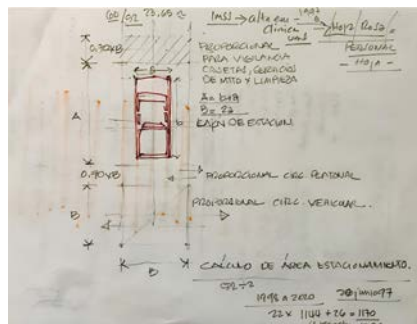 23,65
IMSS → alta en clinica
Hoja Rosa
PERSONAL
- HOJA -
PROPORCIONAL
PARA VIGILANCIA
CASETAS, SERVICIOS
DE MTTO Y LIMPIEZA
0.30xB
a
b
A = b+a
B = 2a
CAJON DE ESTACION.
A
0.90xB
PROPORCIONAL CIRC. PEATONAL
PROPORCIONAL CIRC. VEHICULAR.
B
B
CALCULO DE ÁREA ESTACIONAMIENTO.
1998 a 2020
22 x 1144 + 26 = 1170